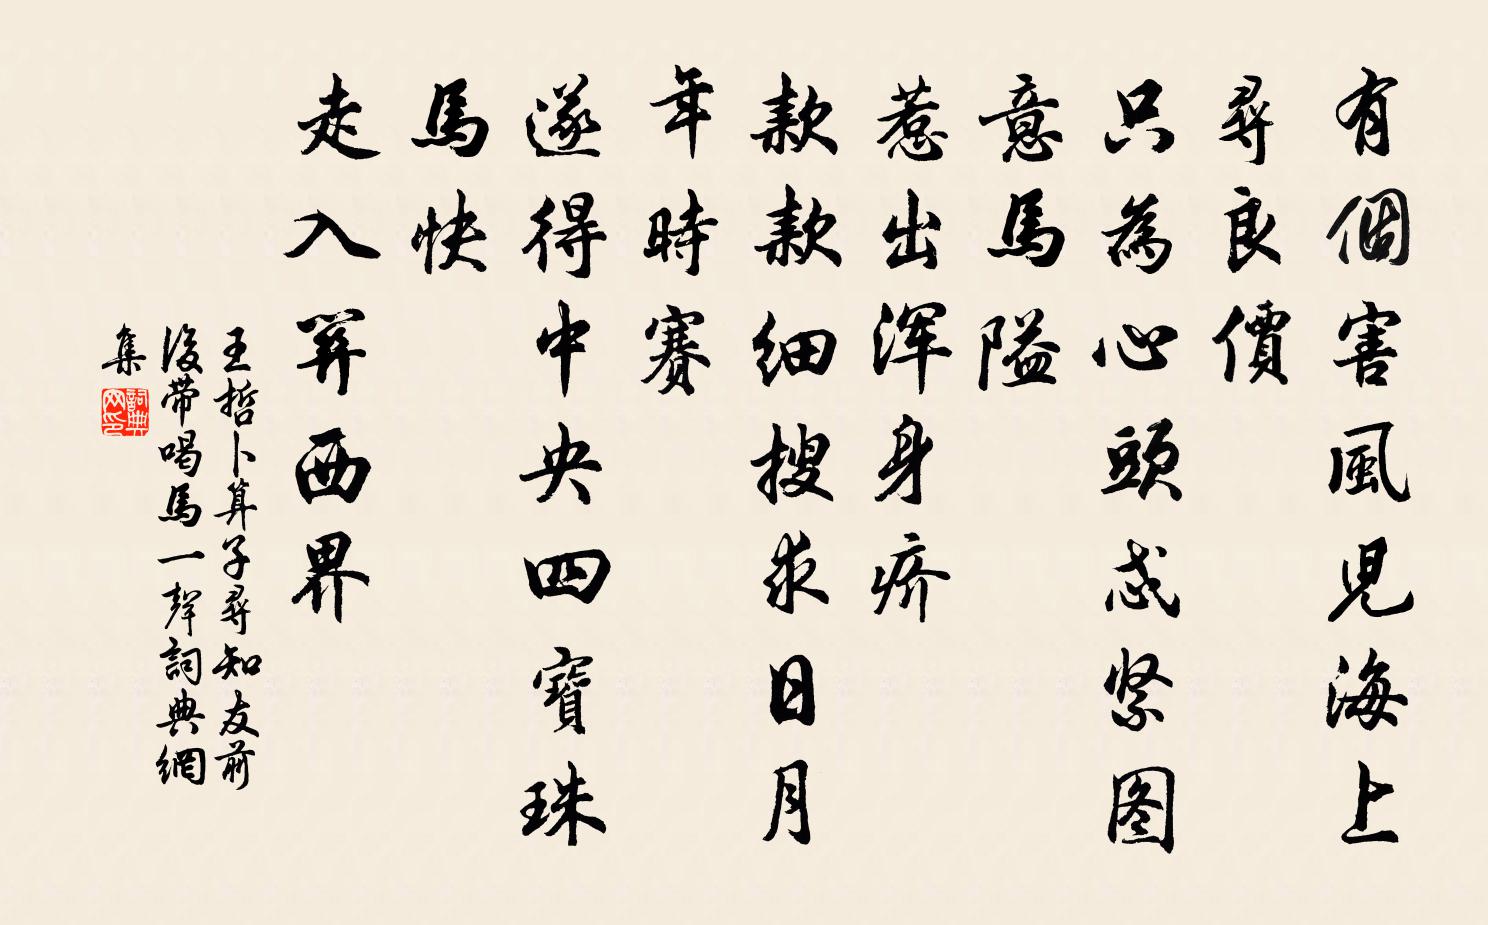 有個害風兒海上
尋良價
只為心頭忒緊图
意馬隘
惹出浑身疥
款款细搜求日月
年時賽
遂得中央四寶珠
馬快
走入箅西界
王哲卜算子尋知友前
後带喝馬一聲詞典網
集
詞典
网印